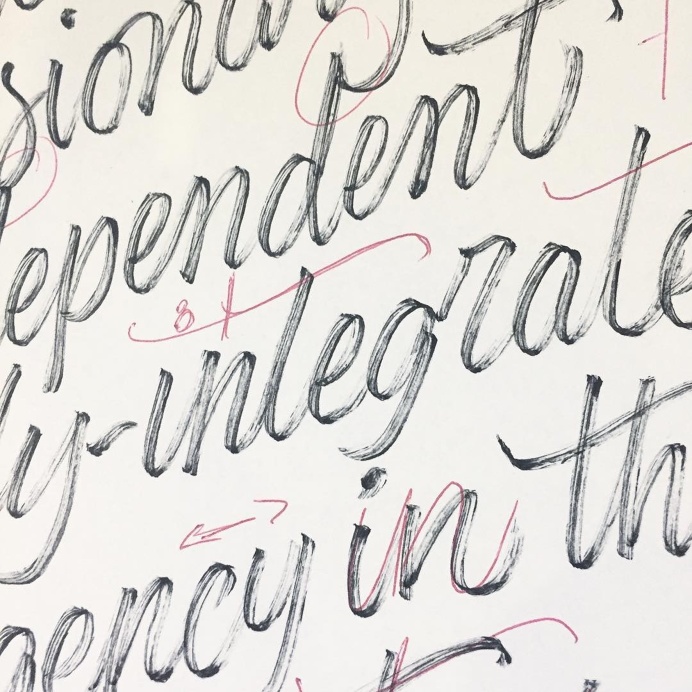 sional
ependent
ly-integrate
gency in th